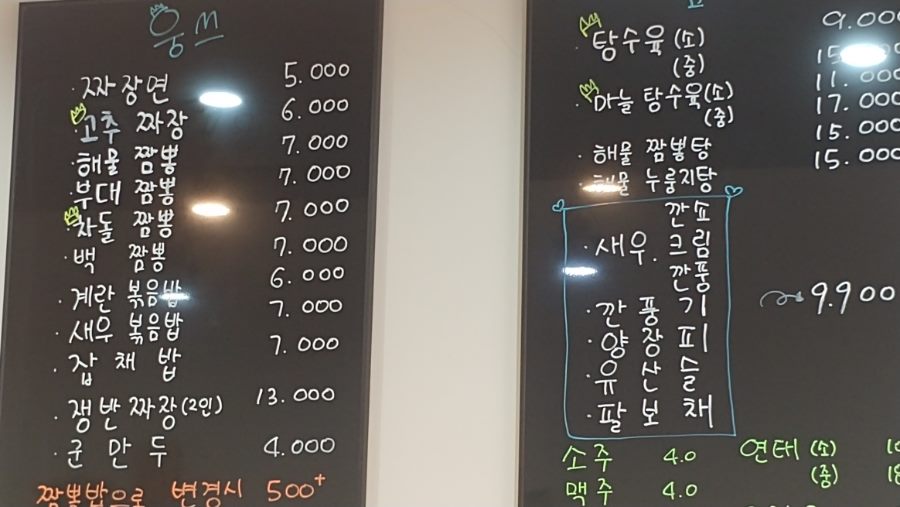 웅m
· 짜장면 5.000
· 고추 짜장 6.000
· 해물 짬뽕 7.000
· 부대 짬뽕 7.000
· 차돌 짬뽕 7.000
· 백 짬뽕 7.000
· 계란 볶음밥 6.000
· 새우 볶음밥 7.000
· 잡 채 밥 7.000
· 쟁반짜장(2인) 13.000
· 군 만 두 4.000
짬뽕밥으로 변경시 500+
· 탕수육(소) 9.000
(중) 15.000
· 마늘 탕수육(소) 11.000
(중) 17.000
· 해물 짬뽕탕 15.000
· 해물 누룽지탕 15.000
깐쇼
· 새우. 크림
깐풍
· 깐 풍 기 9.900
· 양 장 피
· 유 산 슬
· 팔 보 채
소주 4.0 연태 (소)
맥주 4.0 (중)